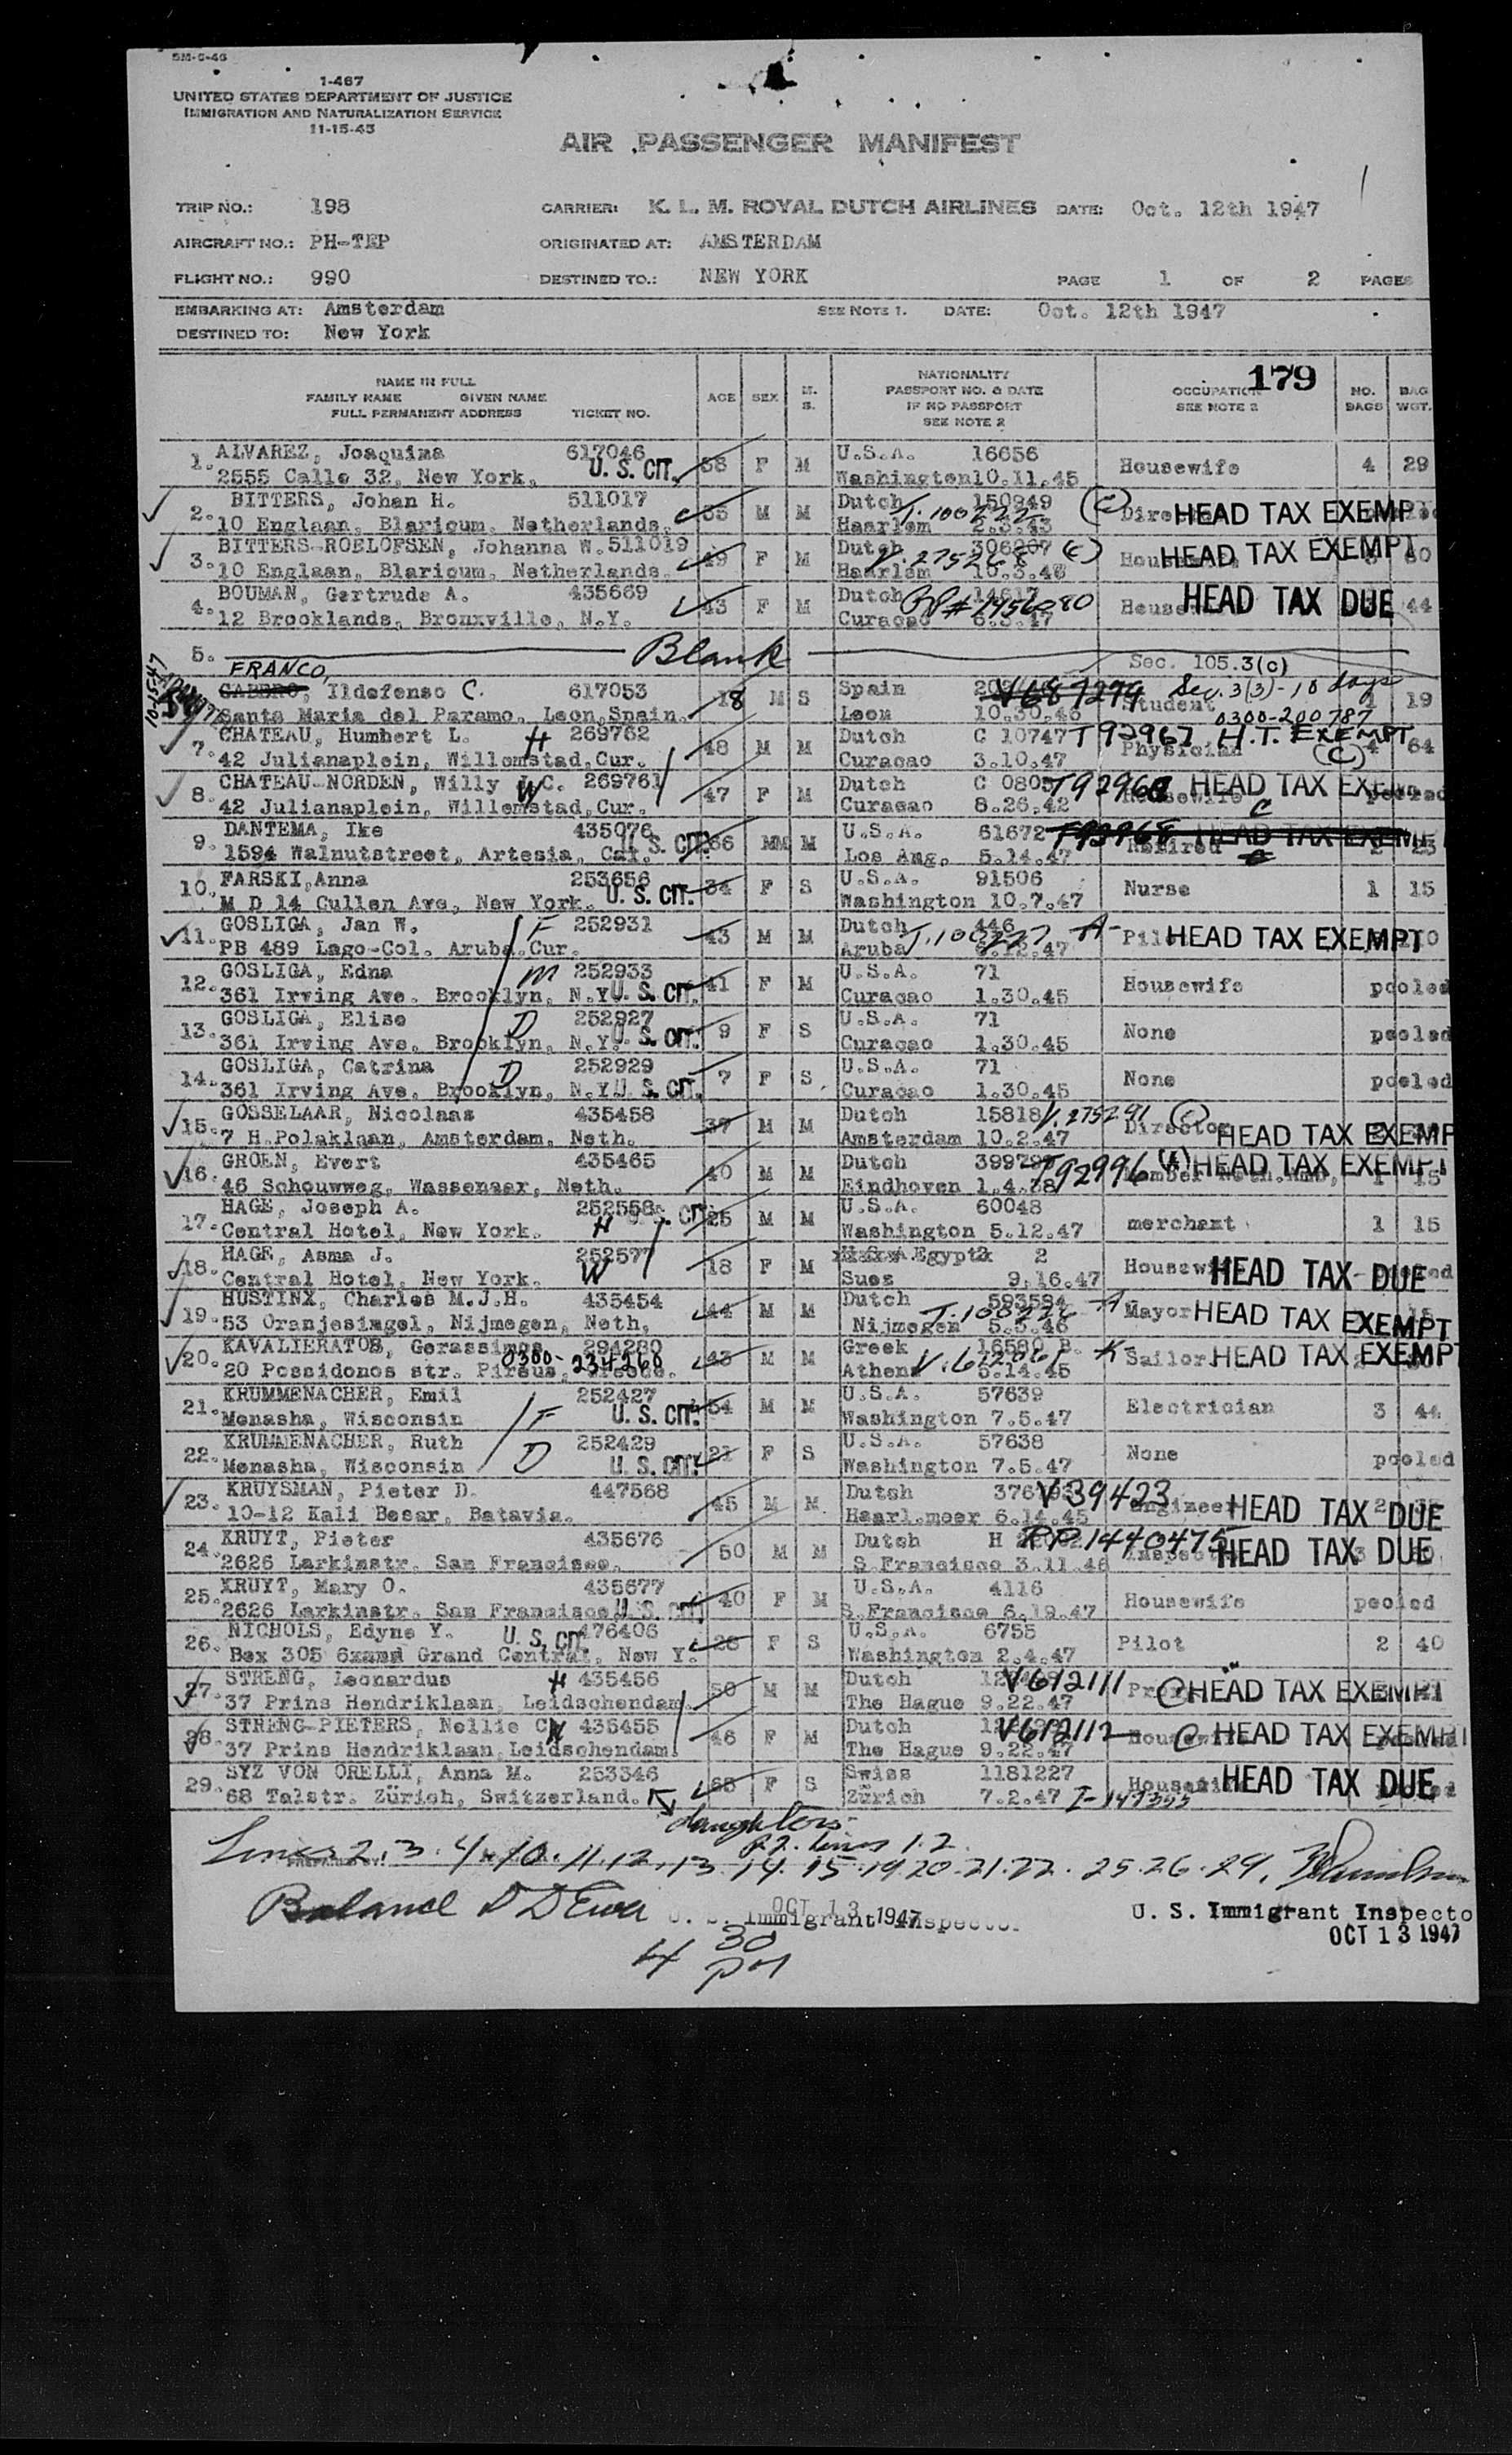 SM-5-46
1-467
UNITED STATES DEPARTMENT OF JUSTICE
IMMIGRATION AND NATURALIZATION SERVICE
11-15-43
AIR PASSENGER MANIFEST
TRIP NO.: 198 CARRIER: K. L. M. ROYAL DUTCH AIRLINES DATE: Oct. 12th 1947
AIRCRAFT NO.: PH-TEP ORIGINATED AT: AMSTERDAM
FLIGHT NO.: 990 DESTINED TO.: NEW YORK PAGE 1 OF 2 PAGES
EMBARKING AT: Amsterdam SEE NOTE 1. DATE: Oct. 12th 1947
DESTINED TO: New York
179
NAME IN FULL
FAMILY NAME GIVEN NAME
FULL PERMANENT ADDRESS TICKET NO. AGE SEX M. S. NATIONALITY PASSPORT NO. & DATE IF NO PASSPORT SEE NOTE 2 OCCUPATION SEE NOTE 2 NO. BAGS BAG WGT.
1. ALVAREZ, Joaquima 617046 U.S.A. 16656
2555 Calle 32, New York. U. S. CIT. 58 F M Washington 10.11.45 Housewife 4 29
2. BITTERS, Johan H. 511017 Dutch 150949 T.100222 (C)
10 Englaan, Blaricum, Netherlands. 55 M M Haarlem 2.3.43 HEAD TAX EXEMP
3. BITTERS-ROELOFSEN, Johanna W. 511019 Dutch (C)
10 Englaan, Blaricum, Netherlands. 49 F M Haarlem HEAD TAX EXEMPT
4. BOUMAN, Gertrude A. 435669 Dutch 14617
12 Brooklands, Bronxville, N.Y. 43 F M Curacao 6.3.47 HEAD TAX DUE 44
5. Blank
Sec. 105.3(c)
10-15-47
FRANCO,
Ildefonso C. 617053 18 M S Spain V687279 Sec. 3(3)-10 days
Santa Maria del Paramo, Leon, Spain. Leon 10.30.46 Student 1 19
0300-200787
7. CHATEAU, Humbert L. H 269762 Dutch C 10747 T92967 H.T. EXEMPT
42 Julianaplein, Willemstad, Cur. 48 M M Curacao 3.10.47 Physician (C) 4 64
8. CHATEAU-NORDEN, Willy J.C. W 269761 Dutch C 0805 T92968 HEAD TAX EXEM
42 Julianaplein, Willemstad, Cur. 47 F M Curacao 8.26.42 Housewife C pooled
9. DANTEMA, Ike 435076 U.S.A. 61672 T92968 HEAD TAX EXEMP
1594 Walnutstreet, Artesia, Cal. U. S. CIT. 66 M M Los Ang. 5.14.47 Retired
10. FARSKI, Anna 253656 U.S.A. 91506
M D 14 Cullen Ave, New York. U. S. CIT. 34 F S Washington 10.7.47 Nurse 1 15
11. GOSLIGA, Jan W. F 252931 Dutch 446 T.100227 A-
PB 489 Lago-Col. Aruba.Cur. 43 M M Aruba HEAD TAX EXEMPT
12. GOSLIGA, Edna M 252933 U.S.A. 71
361 Irving Ave. Brooklyn, N.Y. U. S. CIT. 41 F M Curacao 1.30.45 Housewife pooled
13. GOSLIGA, Elise D 252927 U.S.A. 71
361 Irving Ave. Brooklyn, N.Y. U. S. CIT. 9 F S Curacao 1.30.45 None pooled
14. GOSLIGA, Catrina D 252929 U.S.A. 71
361 Irving Ave. Brooklyn, N.Y. U. S. CIT. 7 F S Curacao 1.30.45 None pooled
15. GOSSELAAR, Nicolaas 435458 Dutch 15818 V.275291 (C)
7 H.Polaklaan, Amsterdam, Neth. 39 M M Amsterdam 10.2.47 Director HEAD TAX EXEMP
16. GROEN, Evert 435465 Dutch T92996 HEAD TAX EXEMPT
46 Schouwweg, Wassenaar, Neth. 40 M M Eindhoven 1 15
17. HAGE, Joseph A. 252558 U. S. CIT. U.S.A. 60048
Central Hotel, New York. H 25 M M Washington 5.12.47 merchant 1 15
18. HAGE, Asma J. 252577 Egypt 2
Central Hotel, New York. W 18 F M Sues 9.16.47 Housewife HEAD TAX DUE
19. HUSTINX, Charles M.J.H. 435454 Dutch 593594 A
53 Oranjesingel, Nijmegen, Neth. 44 M M Nijmegen 5.3.46 Mayor HEAD TAX EXEMPT
20. KAVALIERATOS, Gerassimos 294280 Greek K
20 Possidonos str. Pireus, Greece. 0300-234260 43 M M Athens 5.14.45 Sailor HEAD TAX EXEMPT
21. KRUMMENACHER, Emil F 252427 U.S.A. 57639
Menasha, Wisconsin U. S. CIT. 54 M M Washington 7.5.47 Electrician 3 44
22. KRUMMENACHER, Ruth D 252429 U.S.A. 57638
Menasha, Wisconsin U. S. CIT. 21 F S Washington 7.5.47 None pooled
23. KRUYSMAN, Pieter D. 447568 Dutch V39423
10-12 Kali Besar, Batavia. 45 M M Haarl.meer 6.14.45 Engineer HEAD TAX DUE
24. KRUYT, Pieter 435676 Dutch H RP.1440475
2626 Larkinstr. San Francisco. 50 M M S.Francisco 3.11.46 HEAD TAX DUE
25. KRUYT, Mary O. 435677 U.S.A. 4116
2626 Larkinstr. San Francisco U. S. CIT. 40 F M S.Francisco 6.19.47 Housewife pooled
26. NICHOLS, Edyne Y. U. S. CIT. 476406 U.S.A. 6755
Box 305 Grand Central, New Y. 26 F S Washington 2.4.47 Pilot 2 40
27. STRENG, Leonardus H 435456 Dutch V612111
37 Prins Hendriklaan, Leidschendam. 50 M M The Hague 9.22.47 C HEAD TAX EXEMPT
28. STRENG-PIETERS, Nellie C. W 435455 Dutch V612112
37 Prins Hendriklaan, Leidschendam. 46 F M The Hague 9.22.47 Housewife C HEAD TAX EXEMPT
29. SYZ VON ORELLI, Anna M. 253346 Swiss 1181227
68 Talstr. Zürich, Switzerland. 65 F S Zürich 7.2.47 HEAD TAX DUE
daughters
P.2. lines 1.2
Lines 2. 3. 4. 10. 11. 12. 13 14. 15. 19 20. 21. 22. 25. 26. 29.
Balance
U. S. Immigrant Inspector
OCT 13 1947
U. S. Immigrant Inspecto
OCT 13 1947
4 30
pm